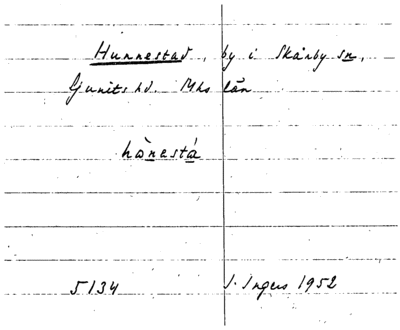 Hunnestad, by i Skårby sn,
Ljunits hd. Mhs län
hònestá
5134 I. Ingers 1952